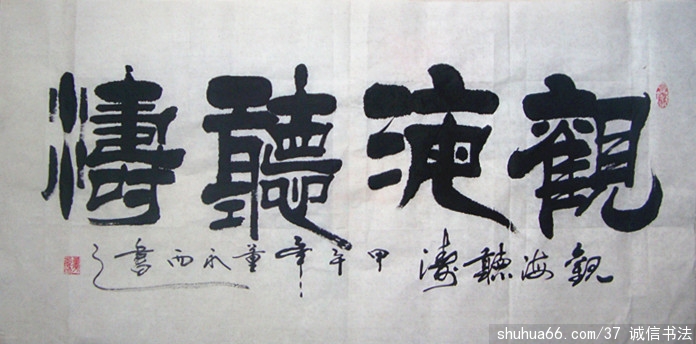 觀海聽濤
觀海聽濤 甲午年董永西書
shuhua66.com/37 诚信书法